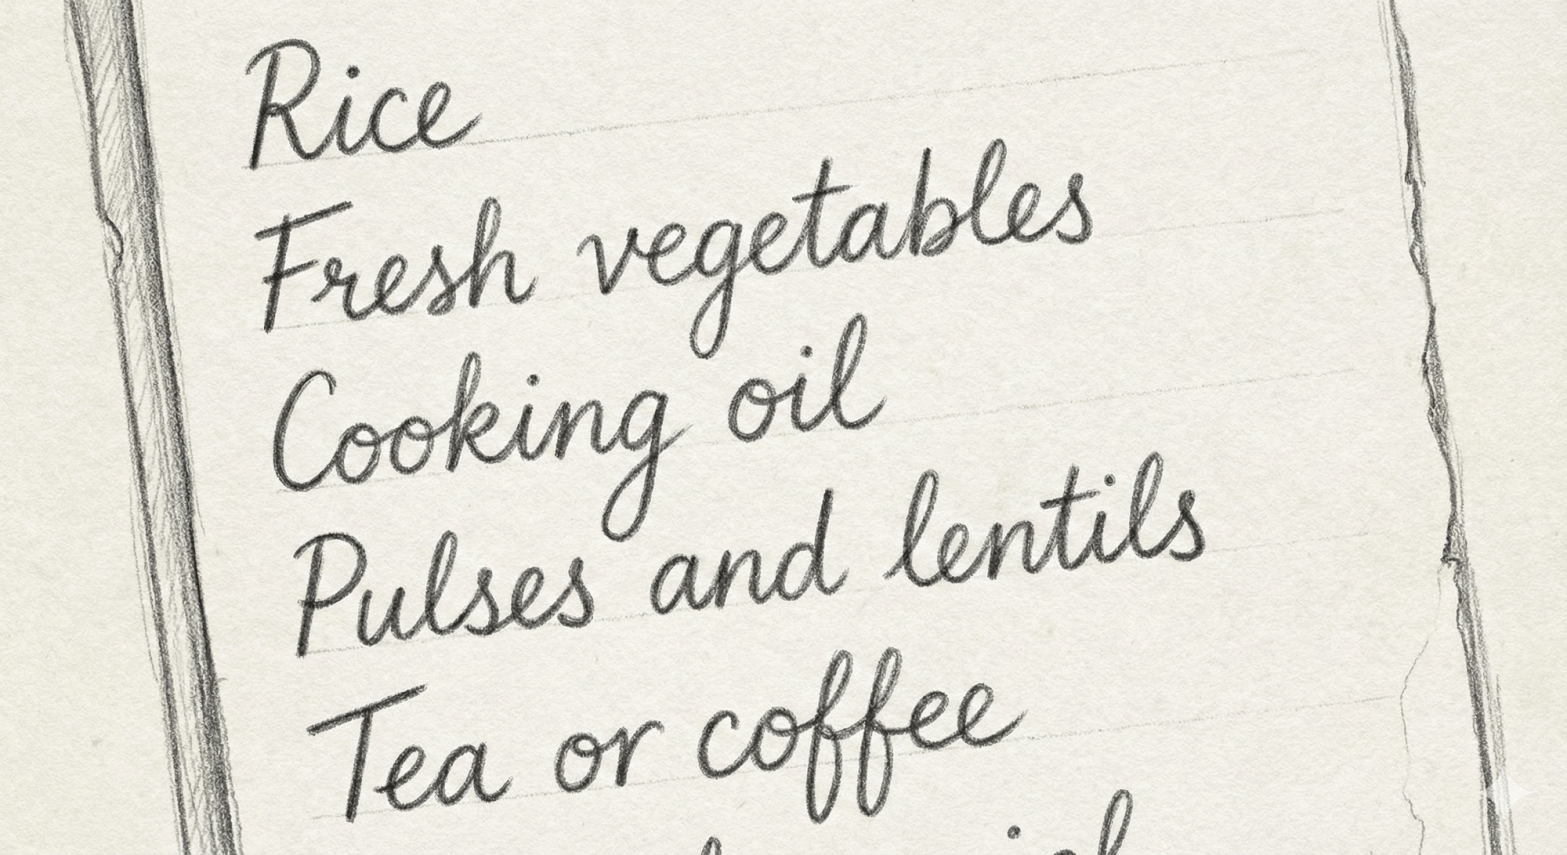 Rice
Fresh vegetables
Cooking oil
Pulses and lentils
Tea or coffee